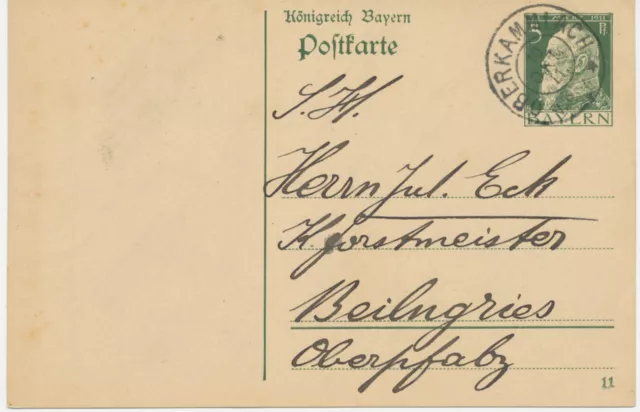 Königreich Bayern
Postkarte
OBERKAMMLACH
5 Pf
BAYERN
S. H.
Herrn Jul. Eck
K. Forstmeister
Beilngries
Oberpfalz
11